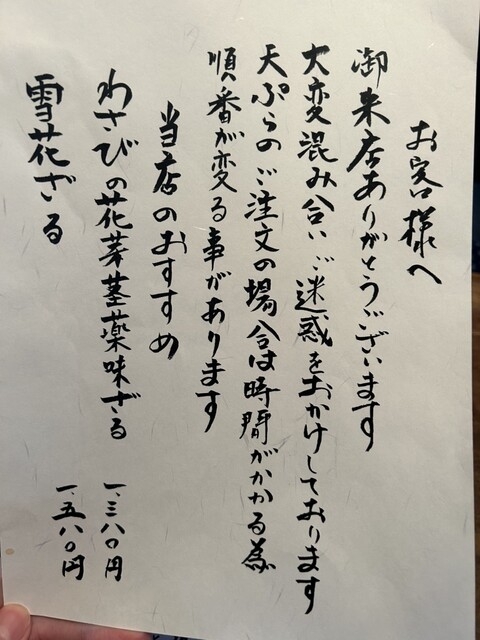 お客様へ
御来店ありがとうございます
大変混み合いご迷惑をおかけしております
天ぷらのご注文の場合は時間がかかる為
順番が変る事があります
当店のおすすめ
わさびの花芽茎薬味ざる 一、三八〇円
雪花ざる 一、五八〇円